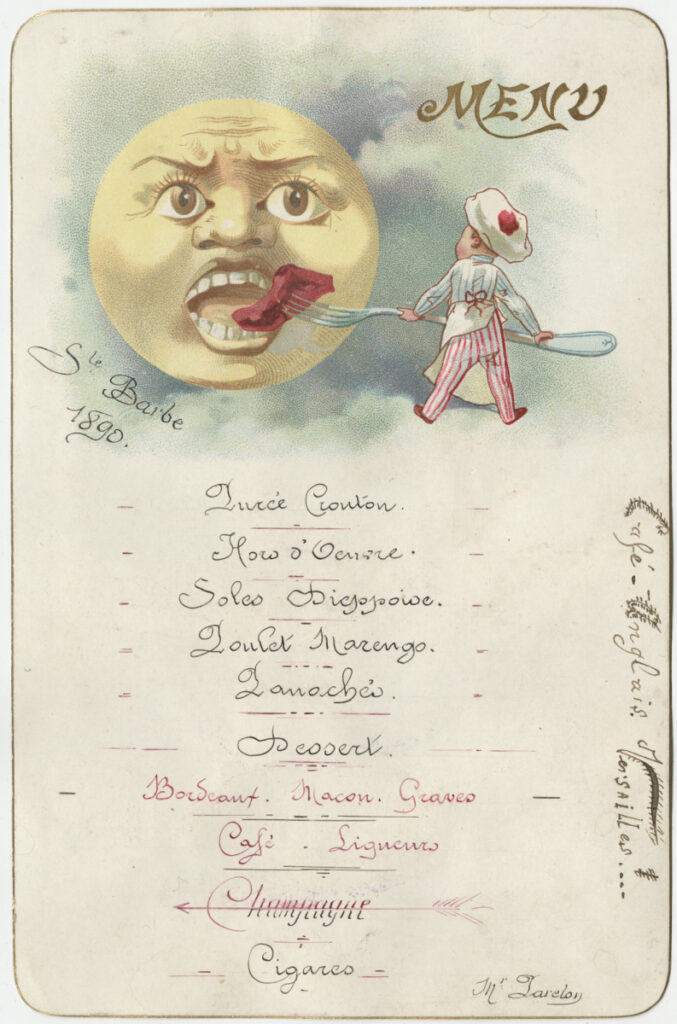 MENU
Ste Barbe
1890.
Purée Crouton.
Hors d'Oeuvre.
Soles Dieppoise.
Poulet Marengo.
Panachés.
Dessert.
Bordeaux. Macon. Graves
Café - Liqueurs
Champagne
Cigares
Mr
Café-Anglais. Versailles....